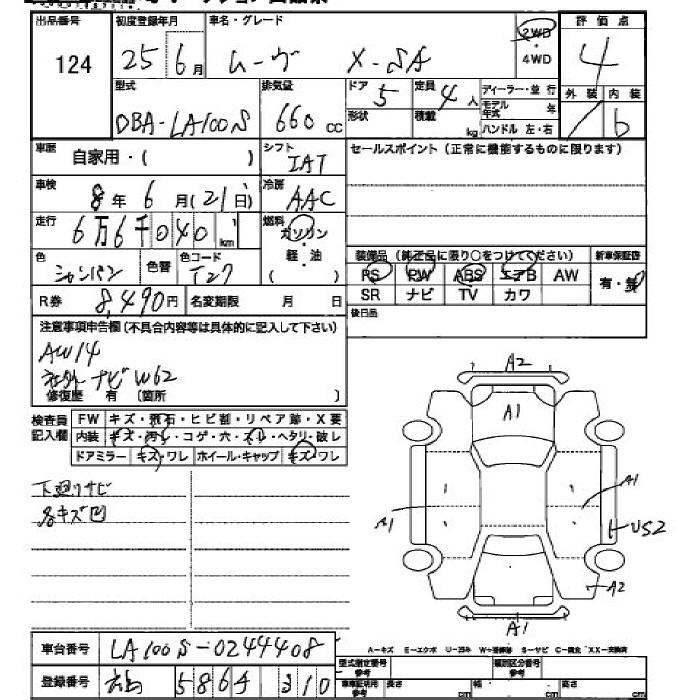 出品番号 初度登録年月 車名・グレード 2WD 評価点
124 25 6月 ムーヴ X-SA ・ 4WD 4
型式 排気量 ドア 5 定員 4人 ディーラー・並行 外装 内装
DBA-LA100S 660cc 形状 積載 kg モデル年式 年 ハンドル 左・右 b
車歴 自家用・( ) シフト IAT セールスポイント (正常に機能するものに限ります)
車検 8年 6月(21日) 冷房 AAC
走行 6万6千040km 燃料 ガソリン・軽油
色 シャンパン 色替 色コード T27 装備品 (純正品に限り○をつけてください) 新車保証書
PS PW ABS エアB AW 有・無
R券 8,490円 名変期限 月 日 SR ナビ TV カワ
後日品
注意事項申告欄 (不具合内容等は具体的に記入して下さい)
AW14
社外ナビW62
修復歴 有 〔箇所 〕
検査員記入欄 FW キズ・飛石・ヒビ割・リペア跡・X要
内装 キズ・汚レ・コゲ・穴・スレ・ヘタリ・破レ
ドアミラー キズ・ワレ ホイール・キャップ キズ・ワレ
下廻りサビ
各キズ凹
A2
A1
A1
A1
US2
A2
A1
車台番号 LA100S-0244408
A-キズ E-エクボ U-凹み W-補修跡 S-サビ C-腐食 XX-交換済
登録番号 5864 310
型式指定番号 参考 類別区分番号 参考
車車証明用 参考 長さ cm 幅 cm 高さ cm